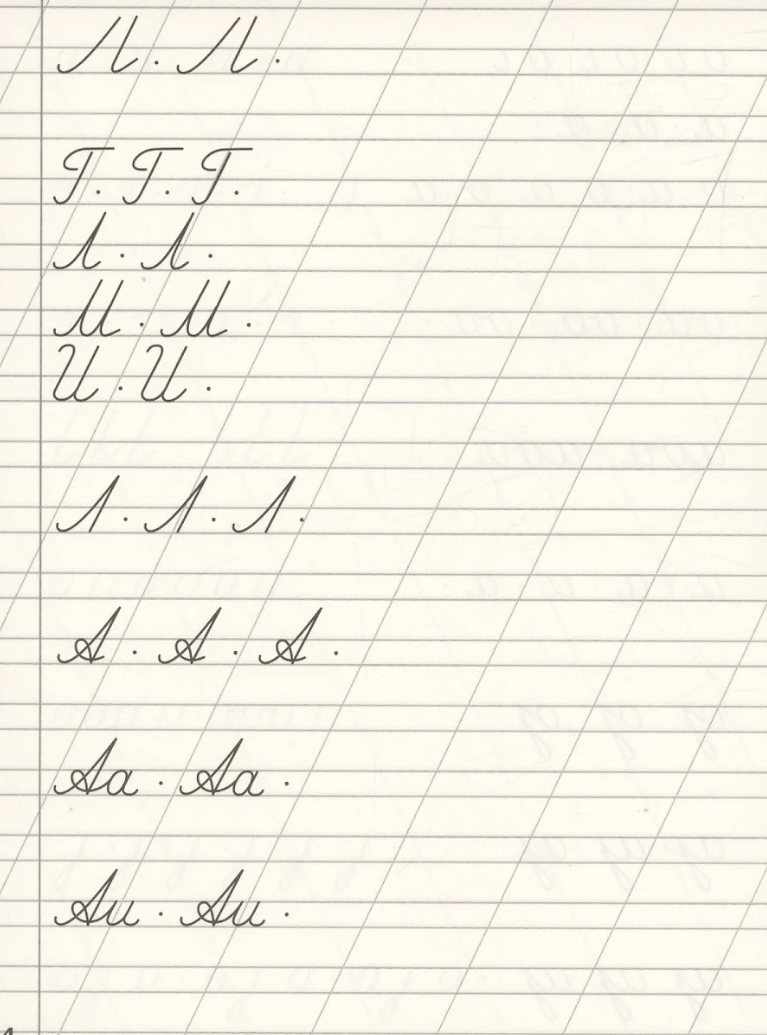 Л . Л .
Г . Г . Г .
Л . Л .
М . М .
И . И .
Л . Л . Л .
А . А . А .
Аа . Аа .
Аи . Аи .